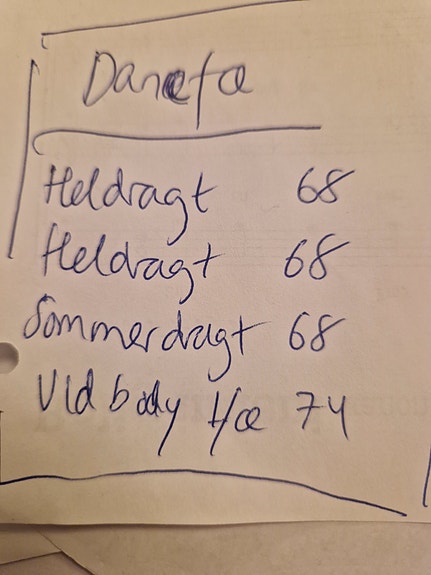 Danefæ
Heldragt 68
Heldragt 68
Sommerdragt 68
Uld body l/æ 74